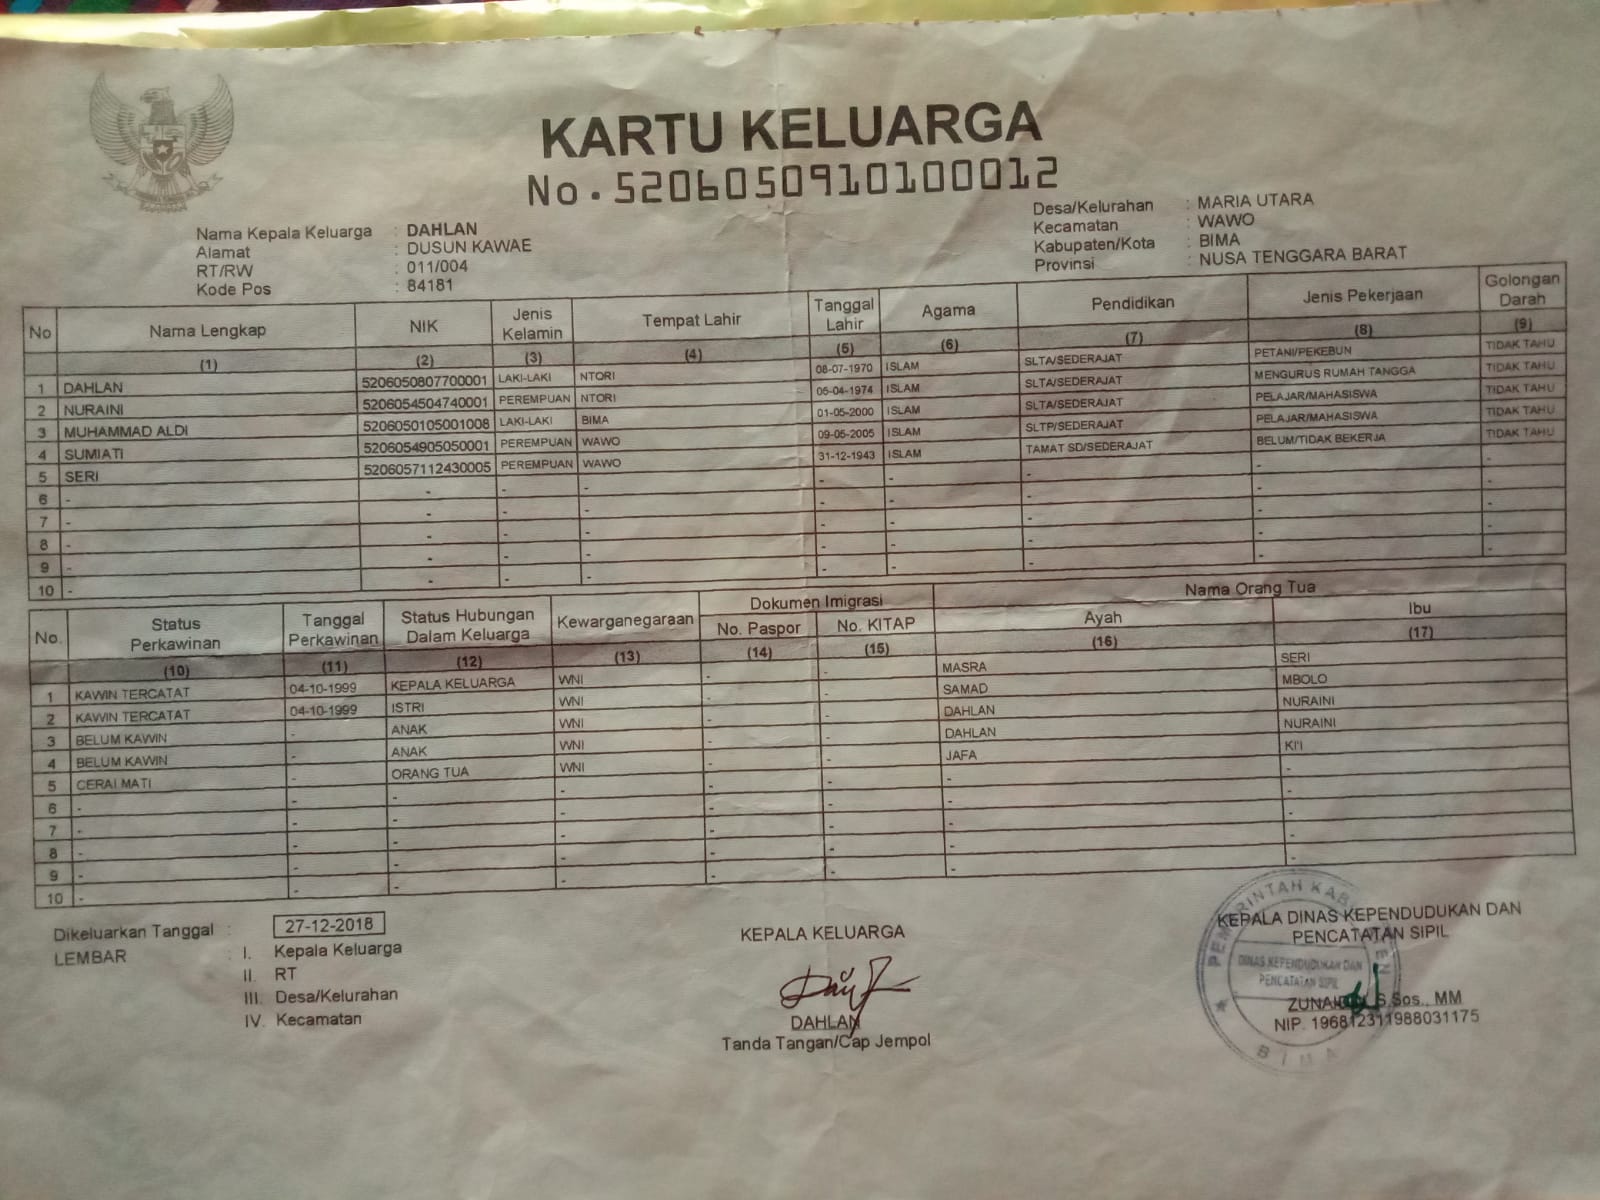 KARTU KELUARGA
No. 5206050910100012
Nama Kepala Keluarga : DAHLAN
Alamat : DUSUN KAWAE
RT/RW : 011/004
Kode Pos : 84181
Desa/Kelurahan : MARIA UTARA
Kecamatan : WAWO
Kabupaten/Kota : BIMA
Provinsi : NUSA TENGGARA BARAT
No Nama Lengkap NIK Jenis Kelamin Tempat Lahir Tanggal Lahir Agama Pendidikan Jenis Pekerjaan Golongan Darah
(1) (2) (3) (4) (5) (6) (7) (8) (9)
1 DAHLAN 5206050807700001 LAKI-LAKI NTORI 08-07-1970 ISLAM SLTA/SEDERAJAT PETANI/PEKEBUN TIDAK TAHU
2 NURAINI 5206054504740001 PEREMPUAN NTORI 05-04-1974 ISLAM SLTA/SEDERAJAT MENGURUS RUMAH TANGGA TIDAK TAHU
3 MUHAMMAD ALDI 5206050105001008 LAKI-LAKI BIMA 01-05-2000 ISLAM SLTA/SEDERAJAT PELAJAR/MAHASISWA TIDAK TAHU
4 SUMIATI 5206054905050001 PEREMPUAN WAWO 09-05-2005 ISLAM SLTP/SEDERAJAT PELAJAR/MAHASISWA TIDAK TAHU
5 SERI 5206057112430005 PEREMPUAN WAWO 31-12-1943 ISLAM TAMAT SD/SEDERAJAT BELUM/TIDAK BEKERJA TIDAK TAHU
6 - - - - - - - - -
7 - - - - - - - - -
8 - - - - - - - - -
9 - - - - - - - - -
10 - - - - - - - - -
No. Status Perkawinan Tanggal Perkawinan Status Hubungan Dalam Keluarga Kewarganegaraan Dokumen Imigrasi Nama Orang Tua
No. Paspor No. KITAP Ayah Ibu
(10) (11) (12) (13) (14) (15) (16) (17)
1 KAWIN TERCATAT 04-10-1999 KEPALA KELUARGA WNI - - MASRA SERI
2 KAWIN TERCATAT 04-10-1999 ISTRI WNI - - SAMAD MBOLO
3 BELUM KAWIN - ANAK WNI - - DAHLAN NURAINI
4 BELUM KAWIN - ANAK WNI - - DAHLAN NURAINI
5 CERAI MATI - ORANG TUA WNI - - JAFA KI'I
6 - - - - - - - -
7 - - - - - - - -
8 - - - - - - - -
9 - - - - - - - -
10 - - - - - - - -
Dikeluarkan Tanggal : 27-12-2018
LEMBAR : I. Kepala Keluarga
II. RT
III. Desa/Kelurahan
IV. Kecamatan
KEPALA KELUARGA
DAHLAN
Tanda Tangan/Cap Jempol
KEPALA DINAS KEPENDUDUKAN DAN
PENCATATAN SIPIL
PEMERINTAH KAB
DINAS KEPENDUDUKAN DAN
PENCATATAN SIPIL
BIMA
S.Sos., MM
NIP. 196812311988031175